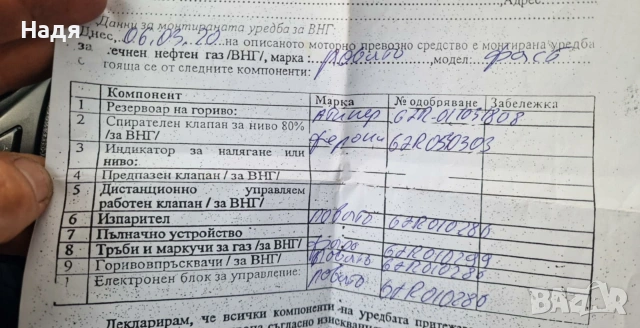 Надя
Адрес:
Данни за монтираната уредба за ВНГ:
Днес, 06.03.20 на описаното моторно превозно средство е монтирана уредба
за течнен нефтен газ /ВНГ/, марка : ловато, модел:
тояща се от следните компоненти:
Компонент Марка № одобряване Забележка
1 Резервоар на гориво: атикер 67R-011037808
2 Спирателен клапан за ниво 80% /за ВНГ/ 67R050303
3 Индикатор за налягане или ниво:
4 Предпазен клапан / за ВНГ/
5 Дистанционно управляем работен клапан / за ВНГ/
6 Изпарител ловато 67R010280
7 Пълначно устройство
8 Тръби и маркучи за газ /за ВНГ/ фаро 67R010299
9 Горивовпръсквачи / за ВНГ/ ловато 67R010280
1 Електронен блок за управление: ловато 67R010280
Декларирам, че всички компоненти на уредбата притежа
съгласно изискван
bazar